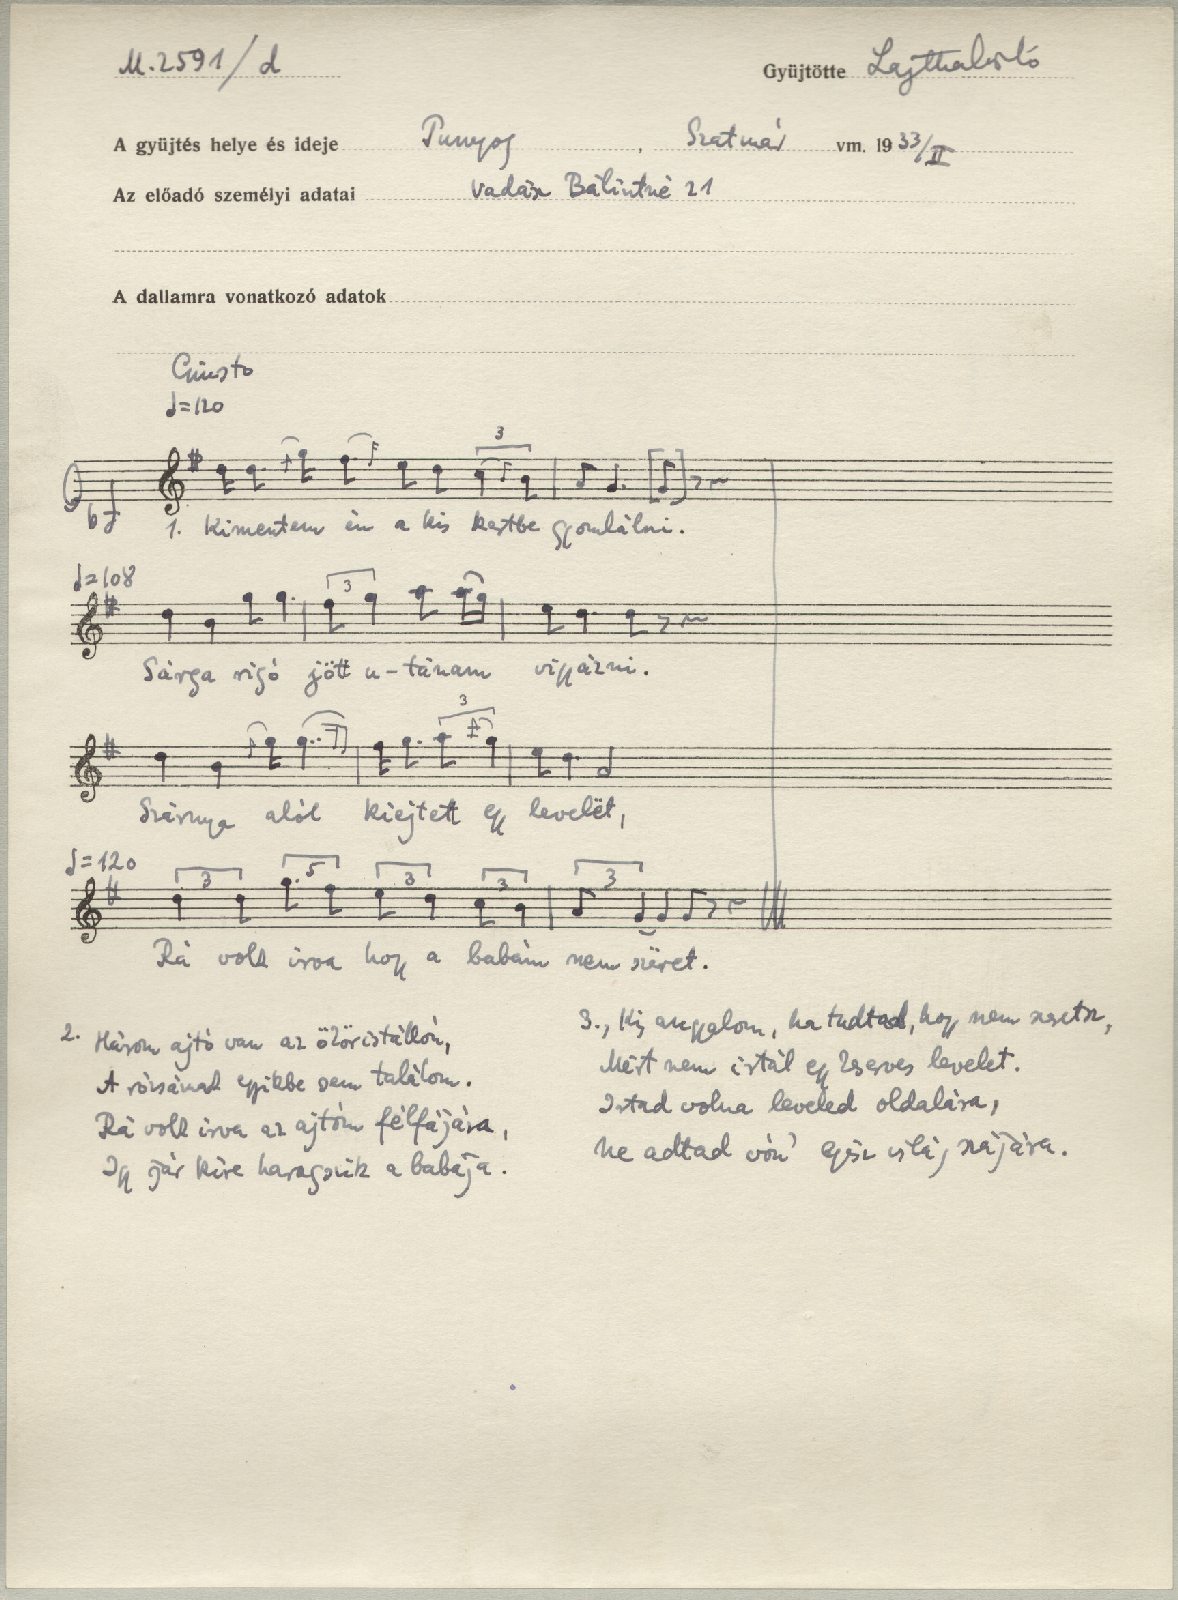 M.2591/d
Gyüjtötte Lajtha László
A gyüjtés helye és ideje Punyog, Szatmár vm. 1933/II
Az előadó személyi adatai Vadász Bálintné 21
A dallamra vonatkozó adatok
Giusto
♩=120
3
1. Kimentem én a kis kertbe gyomlálni.
♩=108
3
Sárga rigó jött u-tánam vigyázni.
3
Szárnya alól kiejtett egy levelët,
♩=120
3 5 3 3 3
Rá volt irva hogy a babám nem szëret.
2. Három ajtó van az
A rózsámat egyikbe sem találom.
Rá volt irva az ajtóm félfájára,
Igy jár kire haragszik a babája.
3., Kis angyalom, ha tudtad, hogy nem szeretsz,
Mért nem irtál egy levelet.
Irtad volna leveled oldalára,
Ne adtad vón' egész világ szájára.